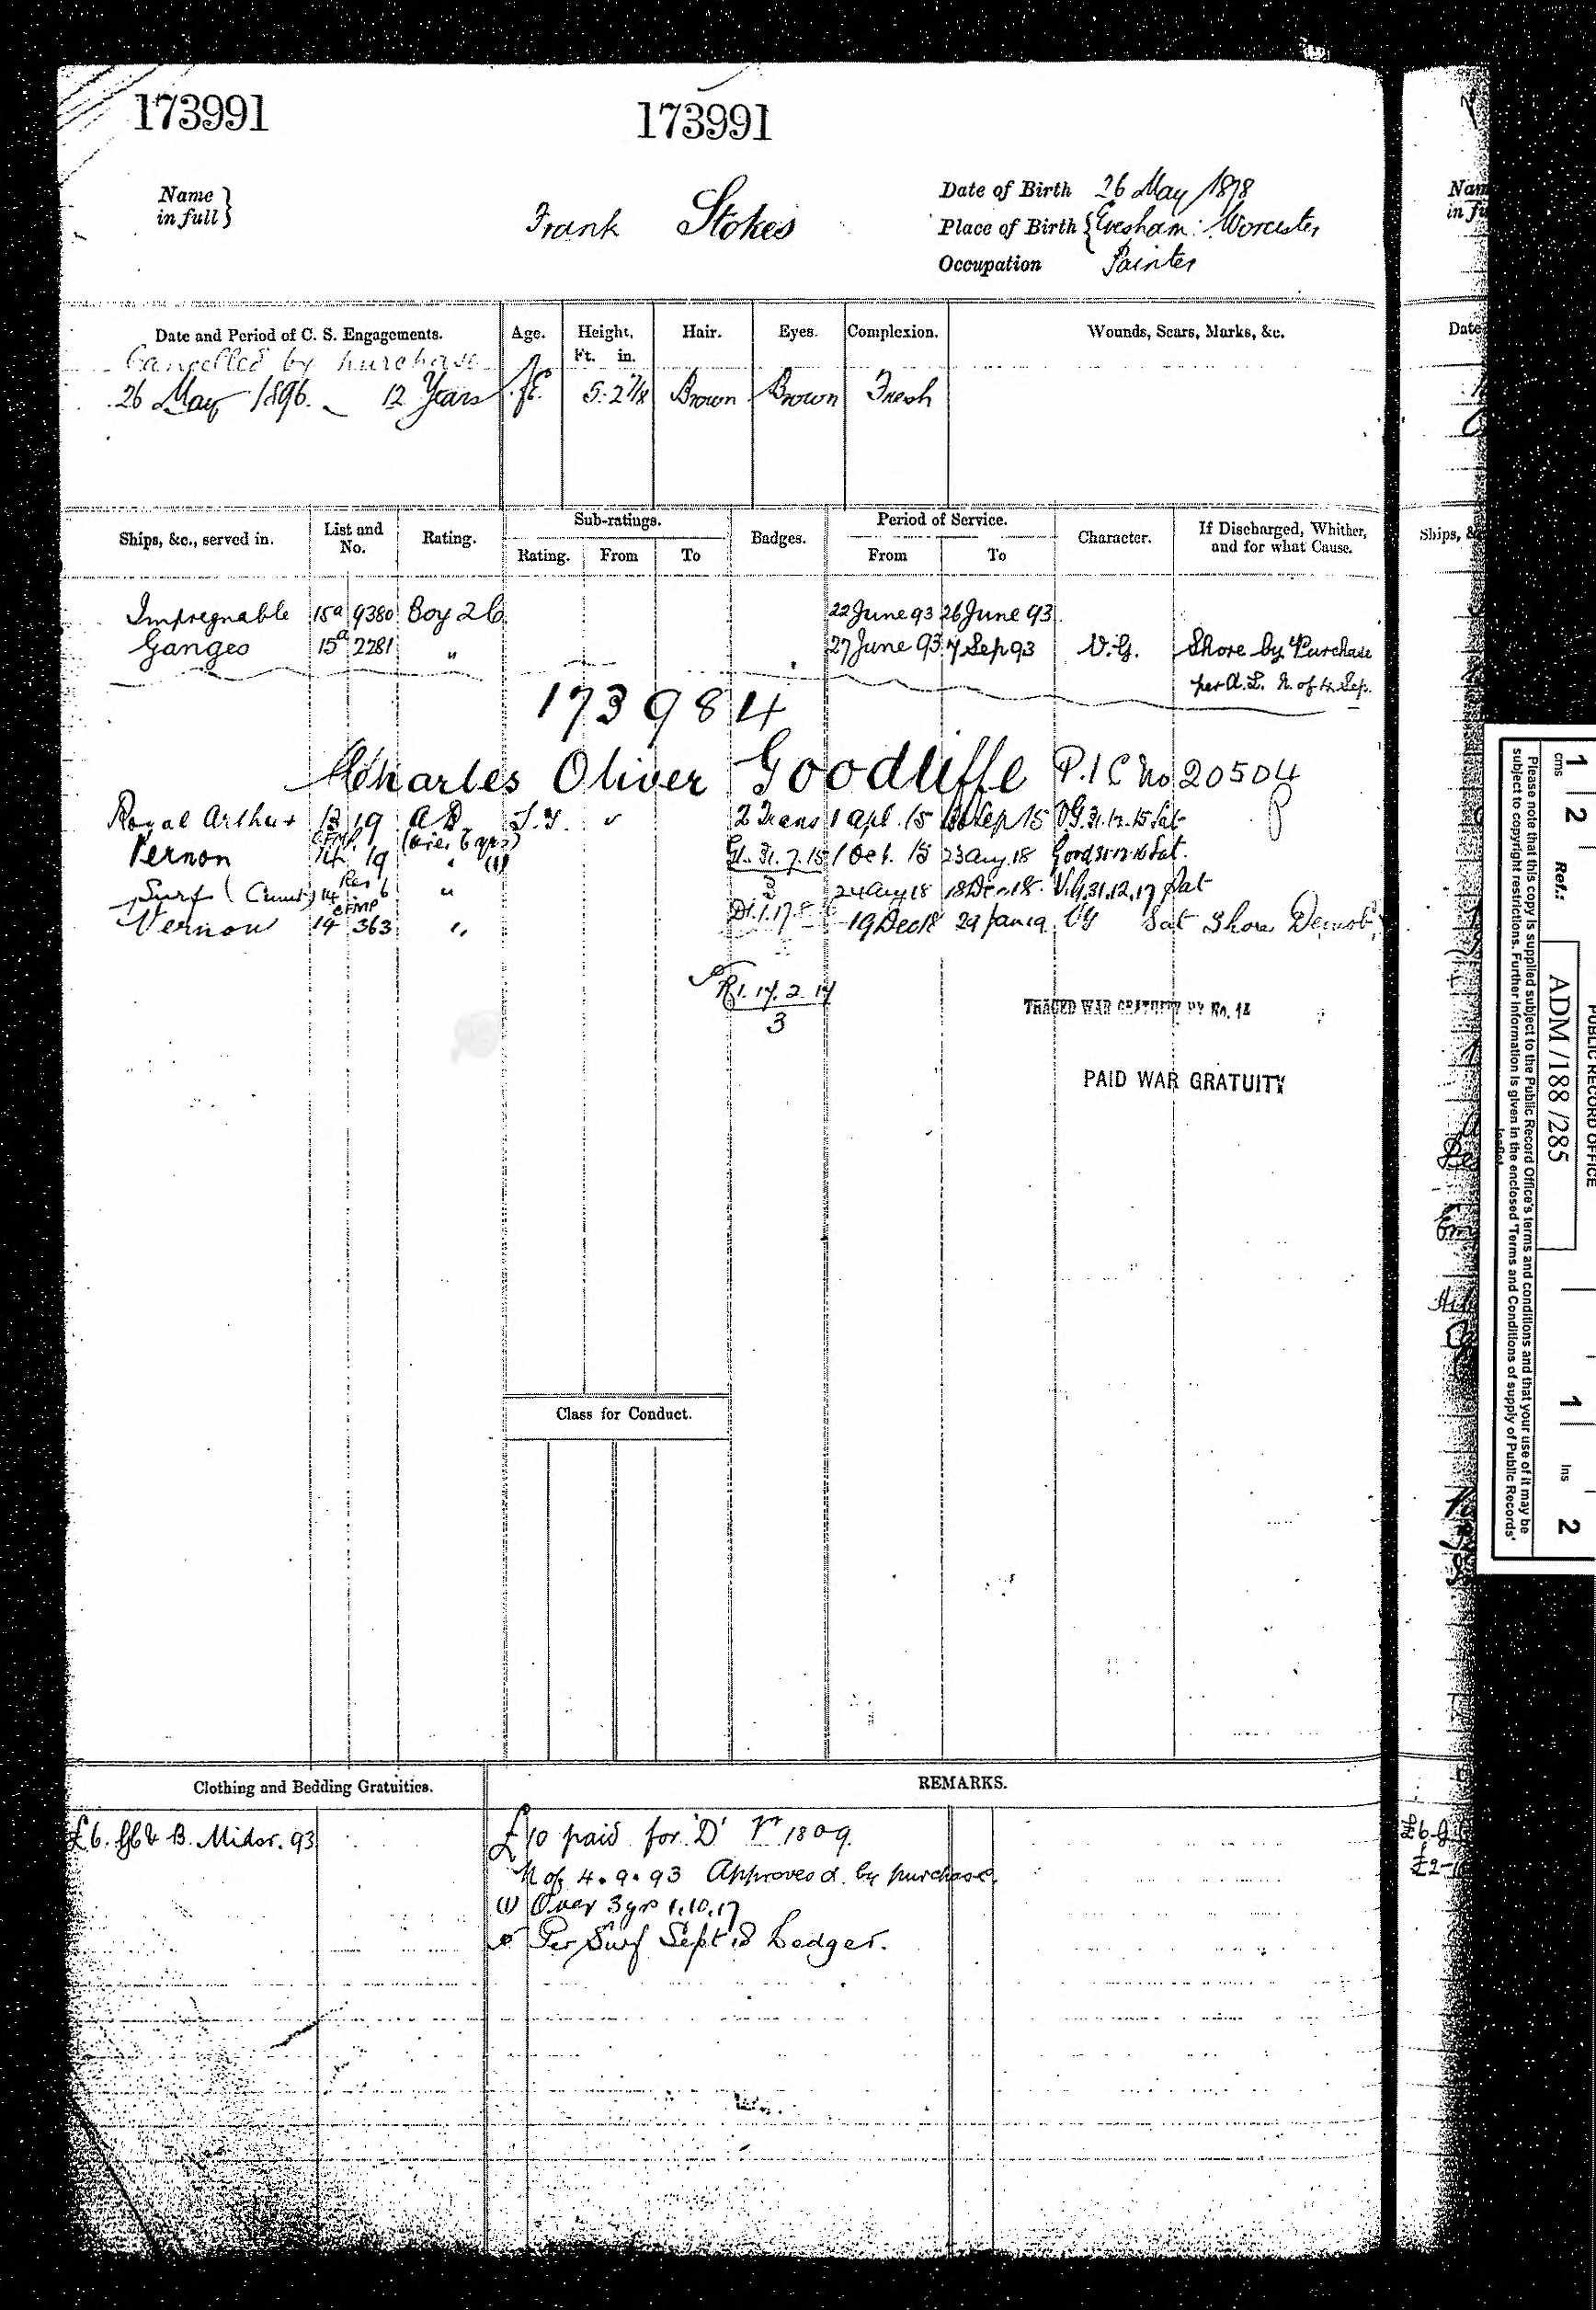 173991 173991
Name in full } Frank Stokes
Date of Birth 26 May 1878
Place of Birth { Evesham: Worcester
Occupation Painter
Date and Period of C. S. Engagements. Age. Height. Ft. in. Hair. Eyes. Complexion. Wounds, Scars, Marks, &c.
Cancelled by purchase
26 May 1896. - 12 Years 5. 2 7/8 Brown Brown Fresh
Ships, &c., served in. List and No. Rating. Sub-ratings. Rating. From To Badges. Period of Service. From To Character. If Discharged, Whither, and for what Cause.
Impregnable 15a 9380 Boy 2 C 22 June 93 26 June 93
Ganges 15a 2281 " 27 June 93 7 Sep 93 V.G. Shore by Purchase
per A.L. N. of 4 Sep.
173984
Charles Oliver Goodliffe P.I C No 20504
Royal Arthur 13 19 AB S.G. 2 Trans 1 Apl. 15 30 Sep 15 VG 31.12.15 Sat
Vernon 14 19 " (1) G1. 31.7.15 1 Oct. 15 23 Aug. 18 Good 31.12.16 Sat.
Surf 14 6 " 3 24 Aug 18 18 Dec 18. V.G. 31.12.17 Sat
Vernon 14 363 " 19 Dec 18 29 Jan 19 VG Sat Shore Demob.
R1. 17. 2. 17
3
TRACED WAR GRATUITY BY No. 14
PAID WAR GRATUITY
Class for Conduct.
Clothing and Bedding Gratuities. REMARKS.
£6. & B. Midsr. 93 £10 paid for 'D' Vr 1809.
N of 4.9.93 Approves d. by purchase.
(1) Over 3 yrs 1.10.17
Per Surf Sept 18 Ledger.
Nam
in fu
Date
Ships, &
£2-
PUBLIC RECORD OFFICE
1 2 cms Ref.: ADM /188 /285 1 Ins 2
Please note that this copy is supplied subject to the Public Record Office's terms and conditions and that your use of it may be
subject to copyright restrictions. Further information is given in the enclosed 'Terms and Conditions of supply of Public Records'
leaflet